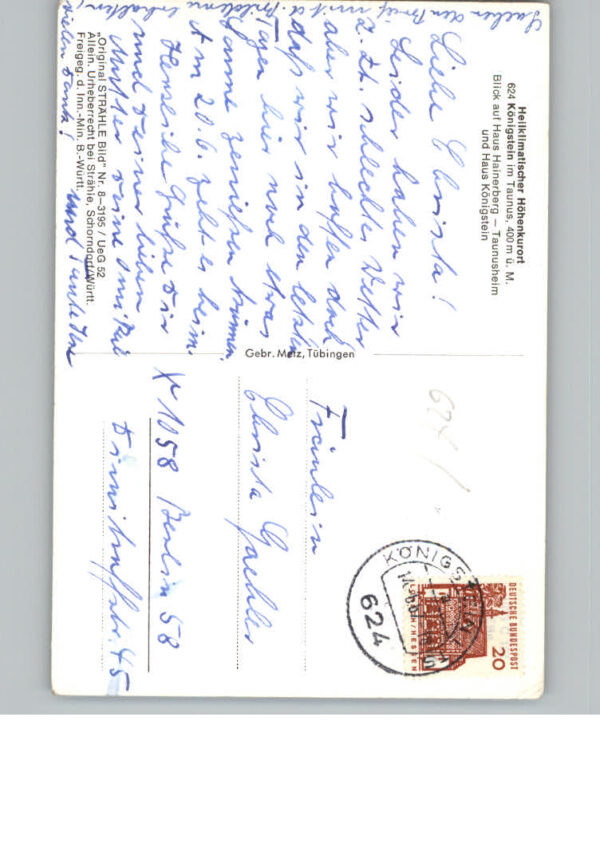 Heilklimatischer Höhenkurort
624 Königstein im Taunus, 400 m ü. M.
Blick auf Haus Hainerberg – Taunusheim
und Haus Königstein
Liebe Christa!
Leider haben wir
z. Zt. schlechtes Wetter
aber wir hoffen doch
daß wir in den letzten
Tagen hier noch etwas
Sonne genießen können.
Am 20.6. geht es heim.
Herzliche Grüße Dir
und Deiner lieben
Mutter Deine
und Tante
den Brief mit d. Bildern erhalten!
Vielen Dank!
„Original STRÄHLE Bild" Nr. 8–3195 / UeG 52
Allein. Urheberrecht bei Strähle, Schorndorf/Württ.
Freigeg. d. Inn.-Min. B.-Württ.
Gebr. Metz, Tübingen
624
DEUTSCHE BUNDESPOST
20
LORSCH/HESSEN
KÖNIGSTEIN
624
Fräulein
Christa Gaehler
X 1058 Berlin 58
Dimitroffstr. 45